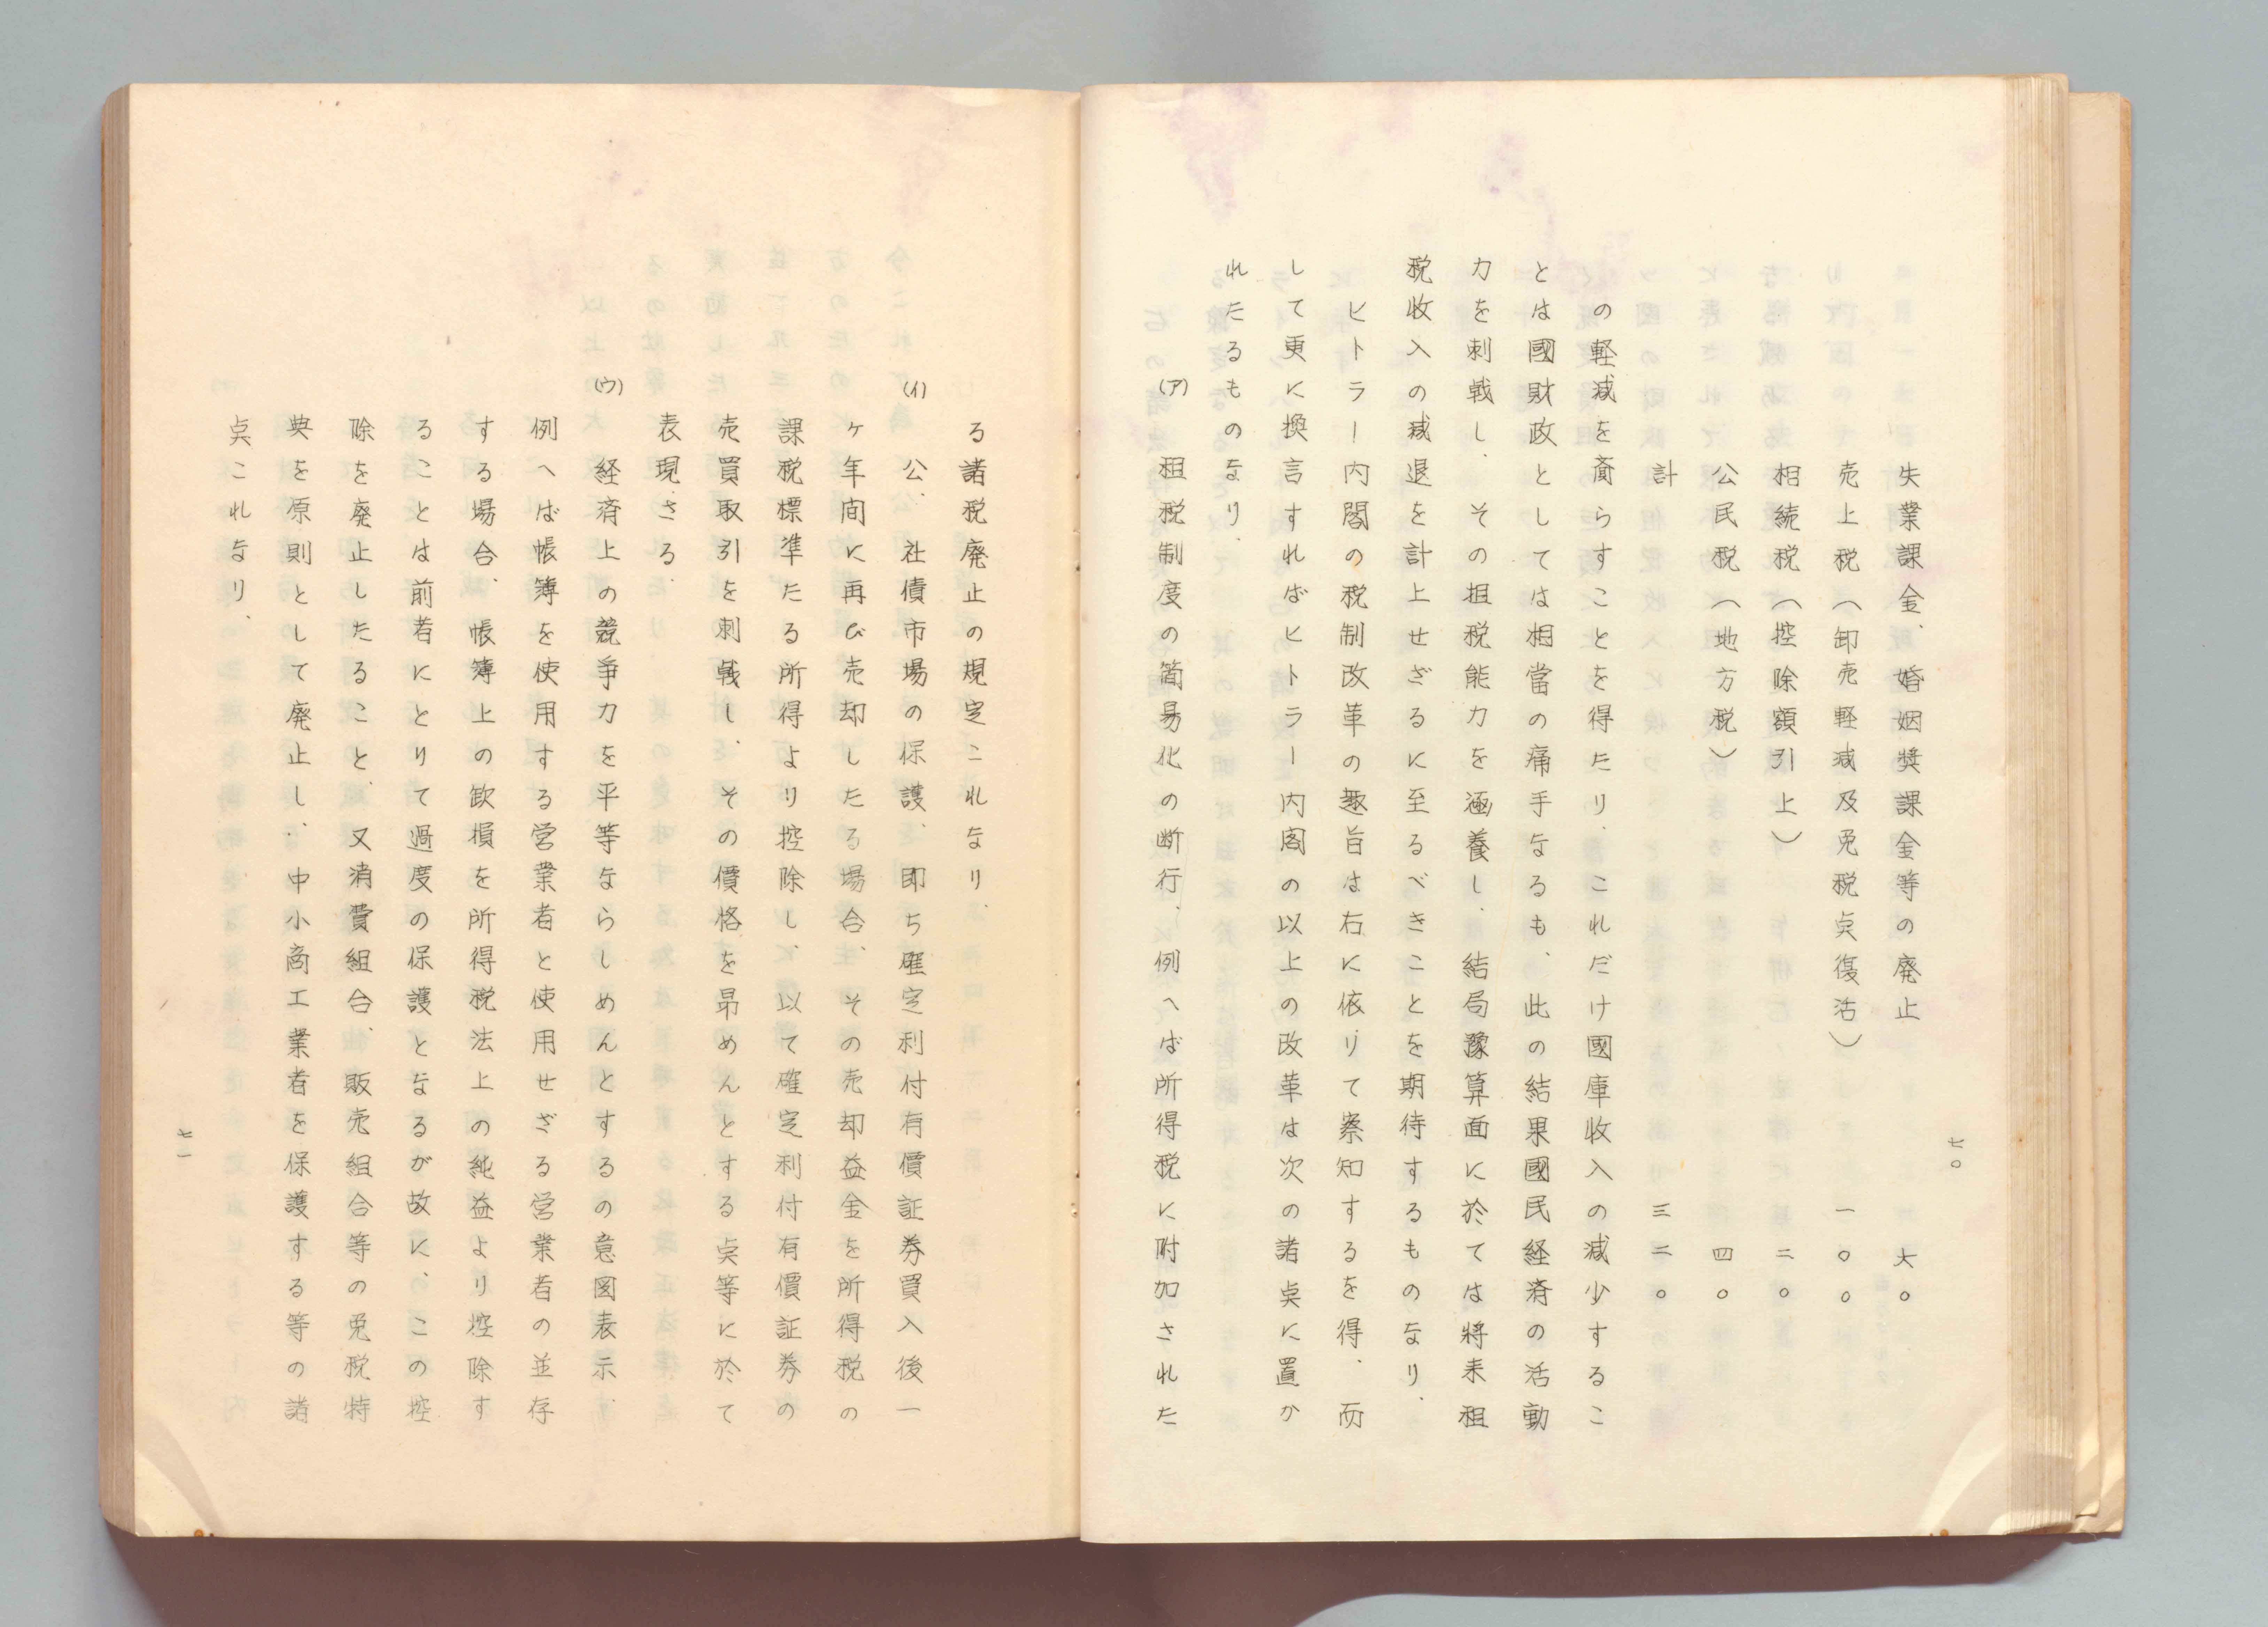 七〇
失業課金、婚姻奬課金等の廃止 六〇
売上税（卸売軽減及免税点復活） 一〇〇
相続税（控除額引上） 二〇
公民税（地方税） 四〇
計 三二〇
の軽減を齎らすことを得たり、これだけ國庫收入の減少するこ
とは國財政としては相當の痛手なるも、此の結果國民経済の活動
力を刺戟し、その担税能力を涵養し、結局豫算面に於ては将来租
税收入の減退を計上せざるに至るべきことを期待するものなり、
ヒトラー内閣の税制改革の趣旨は右に依りて察知するを得、而
して更に換言すればヒトラー内閣の以上の改革は次の諸点に置か
れたるものなり、
(ア) 租税制度の簡易化の断行、例へば所得税に附加された
る諸税廃止の規定これなり、
(イ) 公、社債市場の保護、即ち確定利付有價証券買入後一
ヶ年間に再び売却したる場合、その売却益金を所得税の
課税標準たる所得より控除し、以て確定利付有價証券の
売買取引を刺戟し、その價格を昻めんとする点等に於て
表現さる、
(ウ) 経済上の競争力を平等ならしめんとするの意図表示、
例へば帳簿を使用する営業者と使用せざる営業者の並存
する場合、帳簿上の欽損を所得税法上の純益より控除す
ることは前者にとりて過度の保護となるが故に、この控
除を廃止したること、又消費組合、販売組合等の免税特
典を原則として廃止し、中小商工業者を保護する等の諸
点これなり、
七一